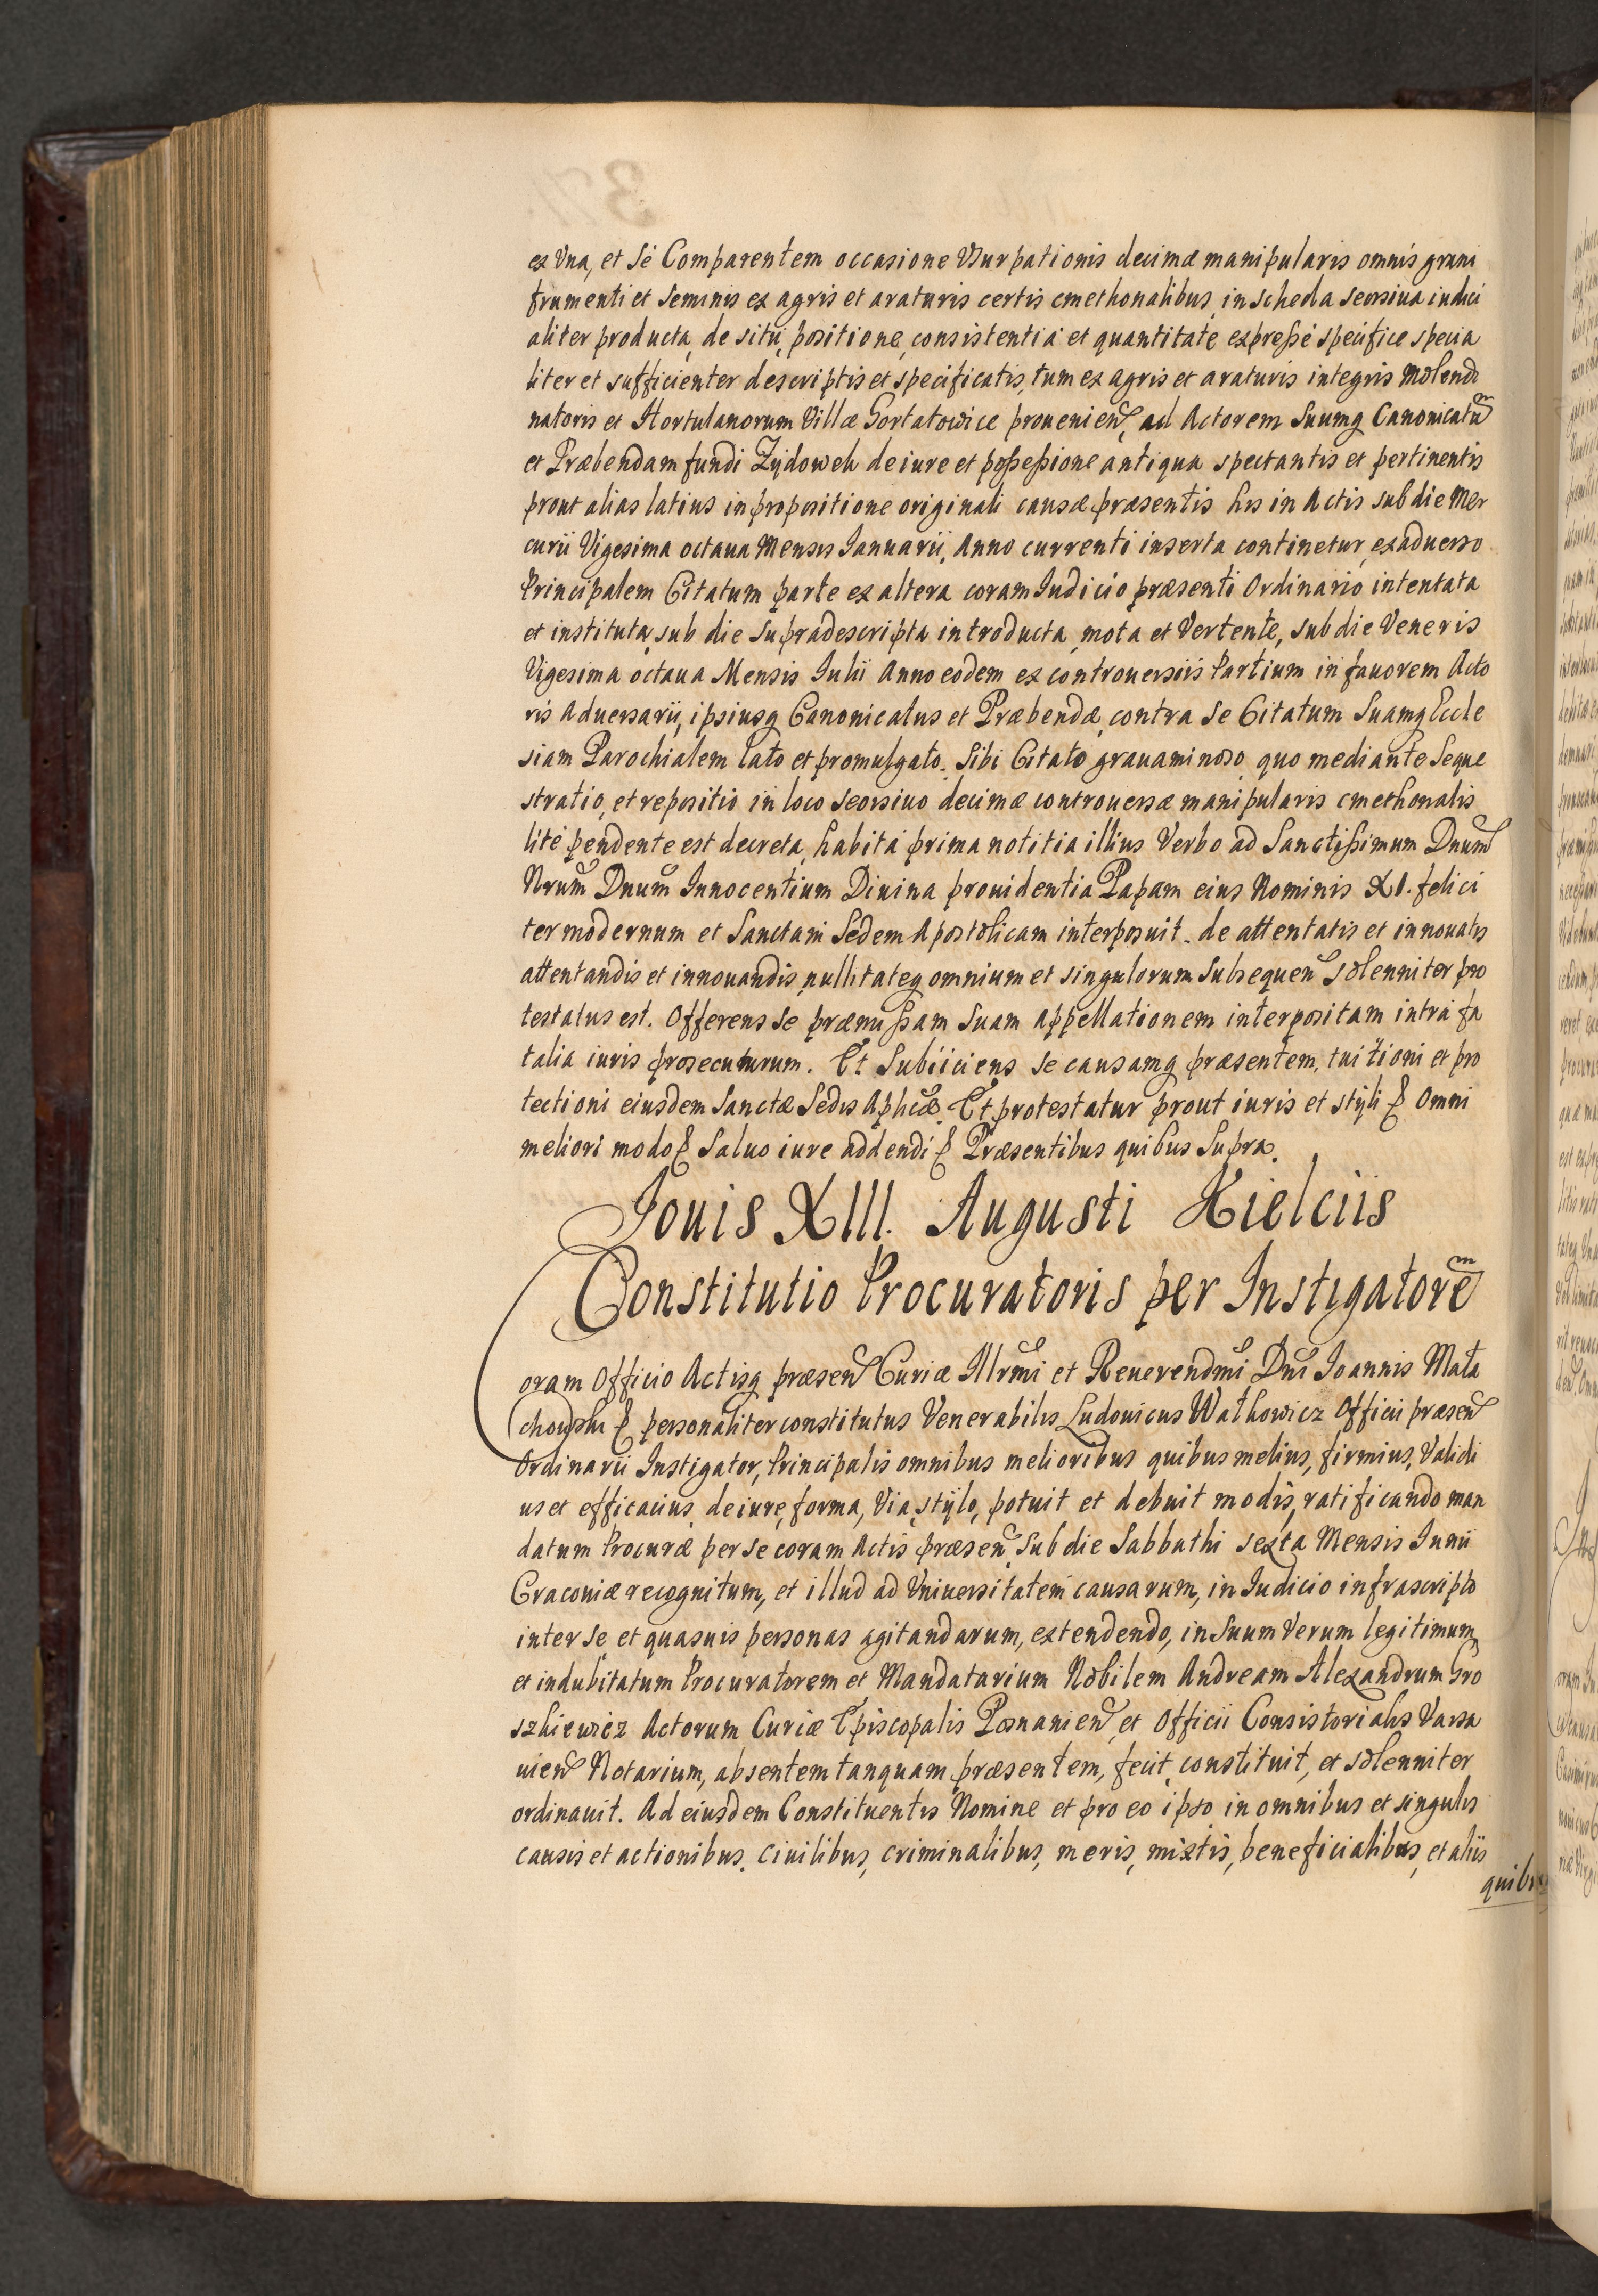 ex Vna, et Sé Comparentem occasione Vsurpationis decimæ manipularis omnis grani
frumenti et Seminis ex agris et araturis certis cmethonalibus, in scheda seorsiua iudici
aliter producta, de situ, positione, consistentia et quantitate expreßé specifice specia
liter et sufficienter descriptis et specificatis, tum ex agris et araturis integris Molendi
natoris et Hortulanorum Villæ Gortatowice prouenien̄, ad Actorem Suumq Canonicatū
et Præbendam fundi Zydoweh de iure et poßeßione antiqua spectantis et pertinentis
prout alias latius in propositione originali causæ præsentis his in Actis sub die Mer
curii Vigesima octaua Mensis Ianuarii, Anno currenti inserta continetur, ex aduerso
Principalem Citatum parte ex altera coram Iudicio præsenti Ordinario intentata
et instituta, sub die Supradescripta introducta, mota et Vertente, sub die Veneris
Vigesima octaua Mensis Iulii Anno eodem ex controuersiis Partium in fauorem Acto
ris Aduersarii, ipsiusq Canonicatus et Præbendæ, contra Se Citatum Suamq Eccle
siam Parochialem lato et promulgato. Sibi Citato grauaminoso, quo mediante Seque
stratio, et repositio in loco seorsiuo decimæ controuersæ manipularis cmethonalis
lité pendente est decreta, habita prima notitia illius Verbo ad Sanctißimum Dnum
Nrum Dnum Innocentium Diuina prouidentia Papam eius Nominis XI. felici
ter modernum et Sanctam Sedem Apostolicam interposuit. de attentatis et innouatis
attentandis et innouandis, nullitateq omnium et singulorum Subsequen̄ solenniter pro
testatus est. Offerens Se præmißam Suam appellationem interpositam intra fa
talia iuris prosecuturum. Et Subiiciens Se causamq præsentem, tuitioni et pro
tectioni eiusdem Sanctæ Sedis Aplicæ. Et protestatur prout iuris et styli & Omni
meliori modo & Saluo iure addendi & Præsentibus quibus Supra.
Iouis XIII. Augusti Kielciis
Constitutio Procuratoris per Instigatorē
Coram Officio Actisq præsen̄ Curiæ Illrmi et Reuerendmi Dni Ioannis Mała
chowski & personaliter constitutus Venerabilis Ludouicus Wathowicz Officii præsen̄
Ordinarii Instigator, Principalis omnibus melioribus quibus melius, firmius, Validi
us et efficacius de iure, forma, Via, stylo, potuit et debuit modis, ratificando man
datum Procuræ per se coram Actis præsen̄ Sub die Sabbathi sexta Mensis Iunii
Cracouiæ recognitum, et illud ad Vniuersitatem causarum, in Iudicio infrascripto
inter Se et quasuis personas agitandarum, extendendo, in Suum Verum legitimum
et indubitatum Procuratorem et Mandatarium Nobilem Andream Alexandrum Gro
szkiewicz Actorum Curiæ Episcopalis Posnanien̄, et Officii Consistorialis Varsa
uien̄ Notarium, absentem tanquam præsentem, fecit, constituit, et solenniter
ordinauit. Ad eiusdem Constituentis Nomine et pro eo ipso in omnibus et singulis
causis et actionibus, ciuilibus, criminalibus, meris, mixtis, beneficialibus, et aliis